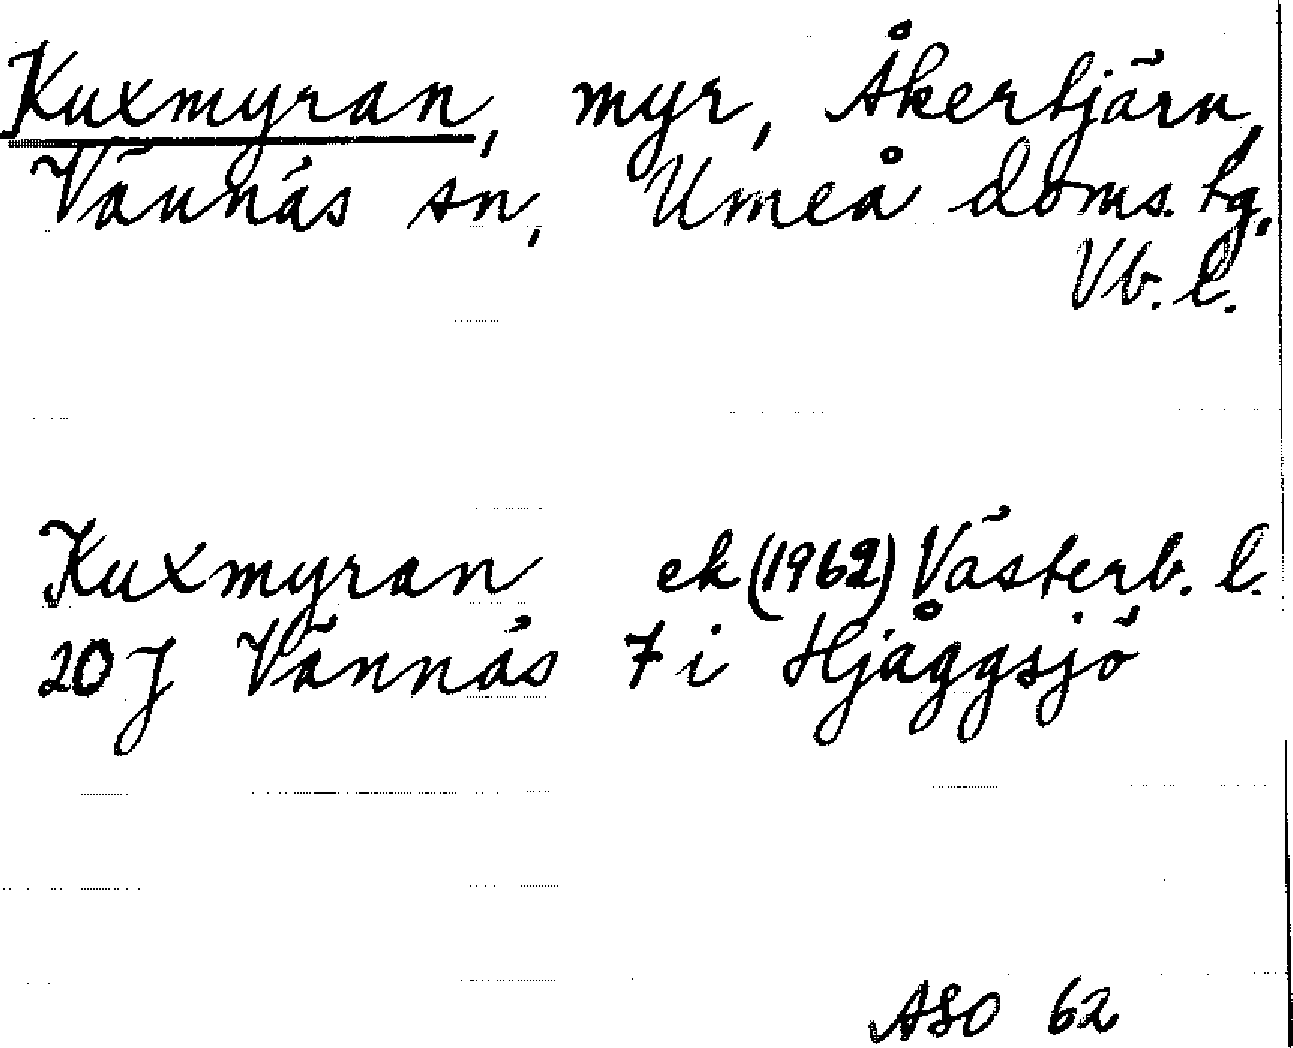 Kuxmyran, myr, Åkertjärn,
Vännäs sn, Umeå doms. tg,
Vb. l.
Kuxmyran ek (1962) Västerb. l.
20J Vännäs 7 i Hjåggsjö
ASO 62